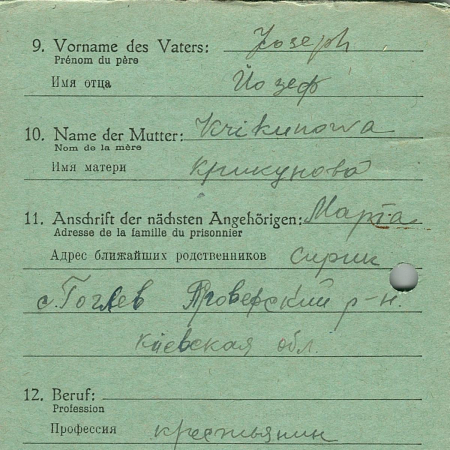 9. Vorname des Vaters: Joseph
Prénom du père
Имя отца Йозеф
10. Name der Mutter: Krikunowa
Nom de la mère
Имя матери Крикунова
11. Anschrift der nächsten Angehörigen: Марта
Adresse de la famille du prisonnier
Адрес ближайших родственников сирик
с. Гоглев р-н.
Киевская обл.
12. Beruf:
Profession
Профессия крестьянин